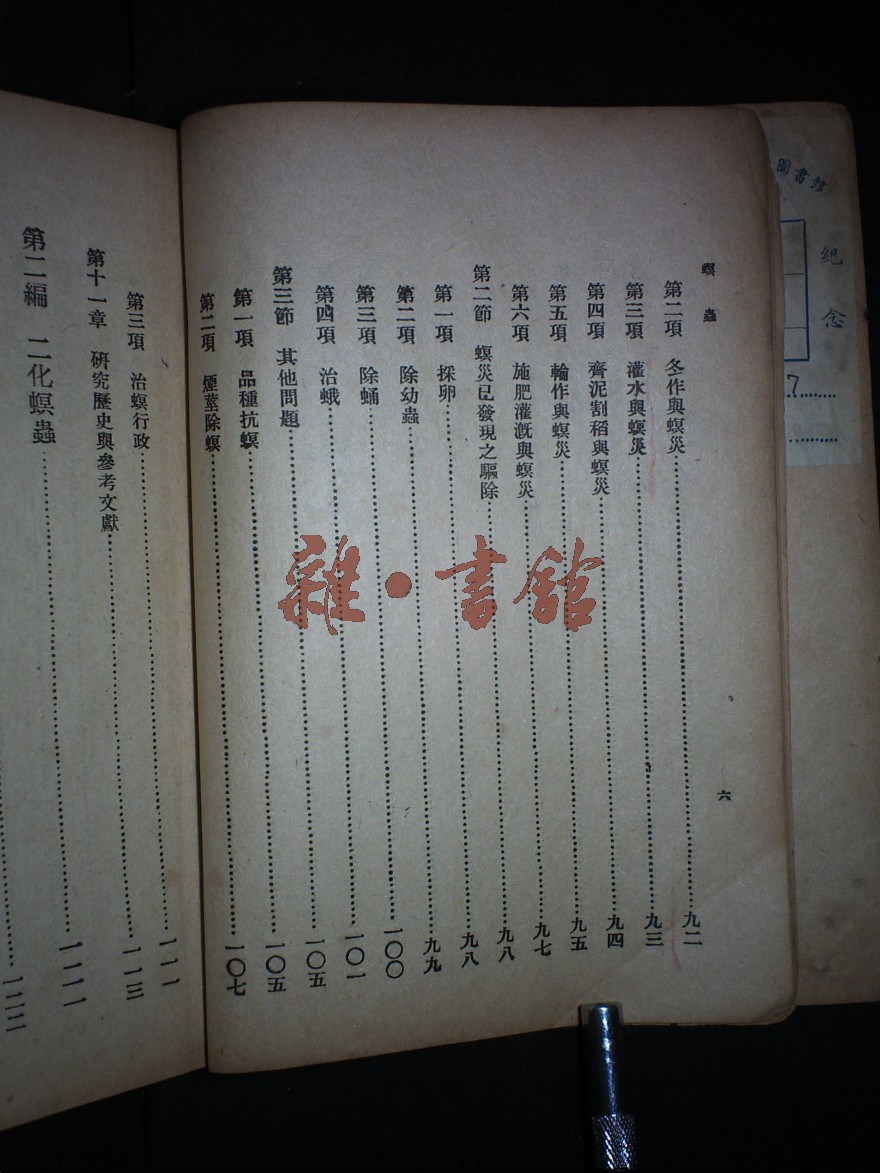 螟蟲
六
第二項 冬作與螟災……九二
第三項 灌水與螟災……九三
第四項 齊泥割稻與螟災……九四
第五項 輪作與螟災……九五
第六項 施肥灌溉與螟災……九七
第二節 螟災已發現之驅除……九八
第一項 採卵……九八
第二項 除幼蟲……九九
第三項 除蛹……一〇〇
第四項 治蛾……一〇一
第三節 其他問題……一〇五
第一項 品種抗螟……一〇五
第二項 煙莖除螟……一〇七
第三項 治螟行政……一一一
第十一章 研究歷史與參考文獻……一一三
第二編 二化螟蟲……
圖書館
紀念
7
雜·書館